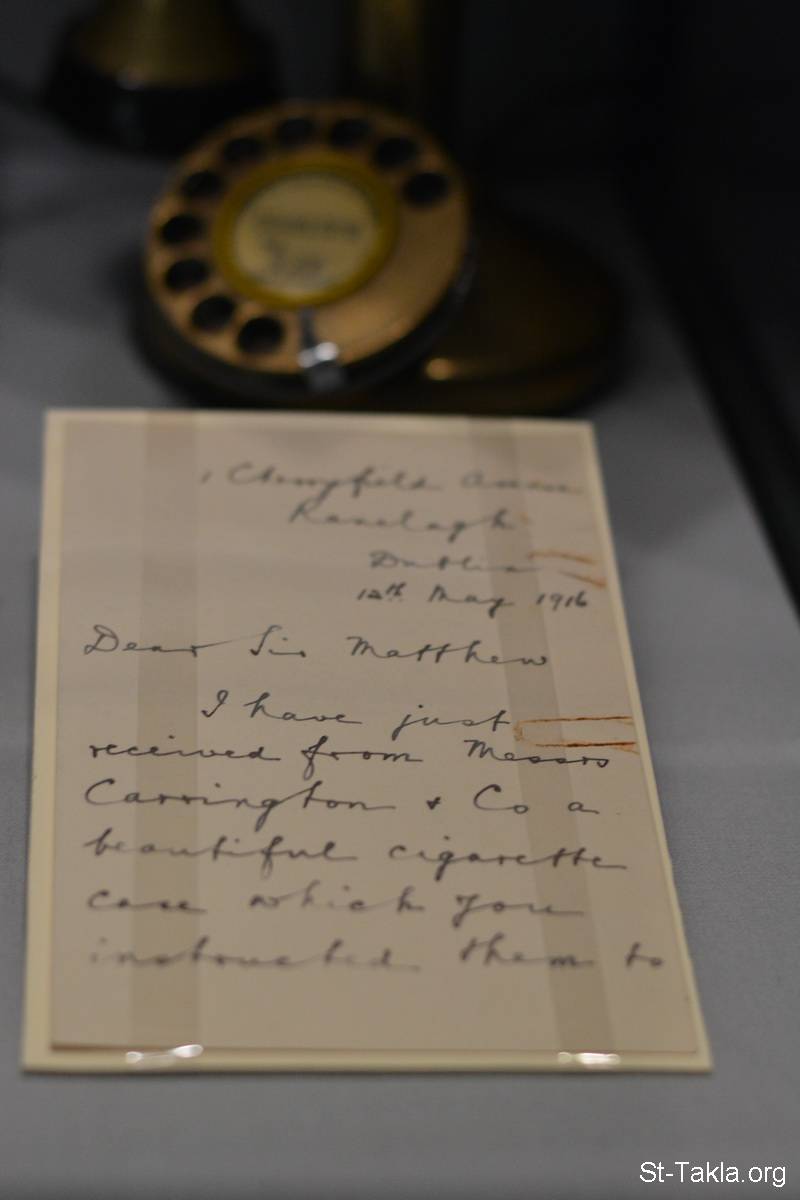 1 Cherryfield Avenue
Ranelagh
Dublin
12th May 1916
Dear Sir Matthew
I have just
received from Messrs
Carrington & Co a
beautiful cigarette
case which you
instructed them to
St-Takla.org